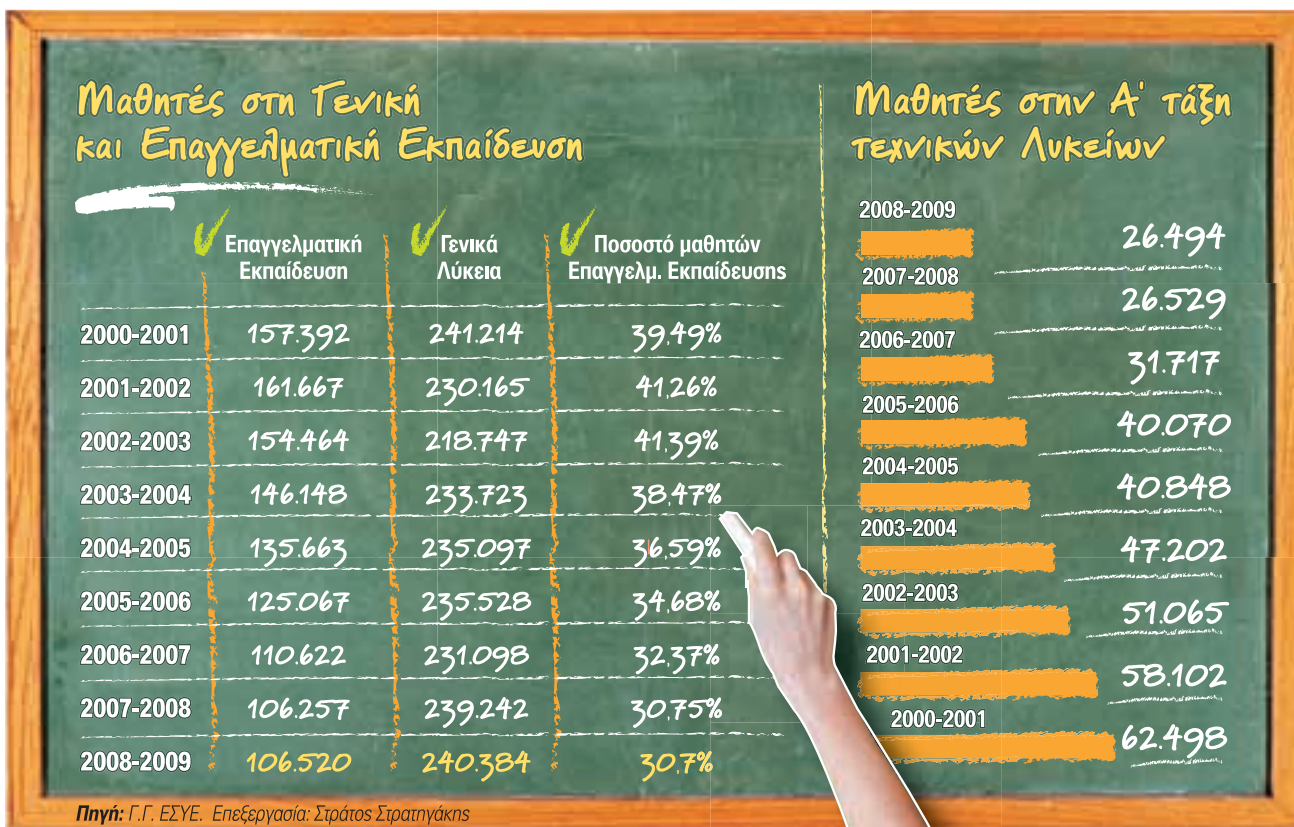 Μαθητές στη Γενική
και Επαγγελματική Εκπαίδευση
Επαγγελματική Εκπαίδευση Γενικά Λύκεια Ποσοστό μαθητών Επαγγελμ. Εκπαίδευσης
2000-2001 157.392 241.214 39,49%
2001-2002 161.667 230.165 41,26%
2002-2003 154.464 218.747 41,39%
2003-2004 146.148 233.723 38,47%
2004-2005 135.663 235.097 36,59%
2005-2006 125.067 235.528 34,68%
2006-2007 110.622 231.098 32,37%
2007-2008 106.257 239.242 30,75%
2008-2009 106.520 240.384 30,7%
Πηγή: Γ.Γ. ΕΣΥΕ. Επεξεργασία: Στράτος Στρατηγάκης
Μαθητές στην Α' τάξη
τεχνικών Λυκείων
2008-2009
26.494
2007-2008
26.529
2006-2007
31.717
2005-2006
40.070
2004-2005
40.848
2003-2004
47.202
2002-2003
51.065
2001-2002
58.102
2000-2001
62.498